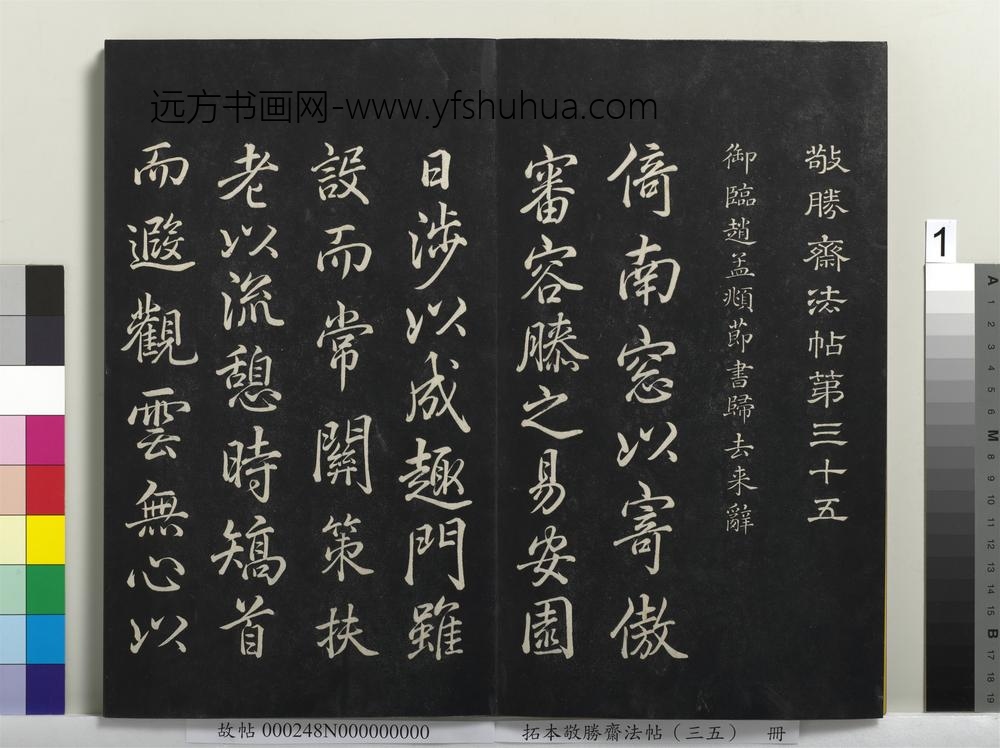 远方书画网-www.yfshuhua.com
敬勝齋法帖第三十五
御臨趙孟頫節書歸去来辭
倚南窓以寄傲
審容膝之易安園
日涉以成趣門雖
設而常關策扶
老以流憩時矯首
而遐觀雲無心以
1
A 1 2 3 4 5 6 M 8 9 10 11 12 13 14 15 B 17 18 19
故帖 000248N000000000
拓本敬勝齋法帖（三五） 冊